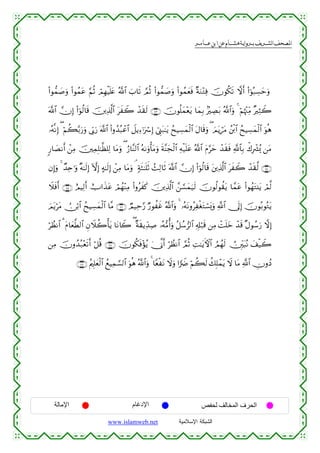 المصحف الشريف برواية هشام عن ابن عامر
وَحَسِبُوٓا۟ أَلَّا تَكُونَ فِتْنَةٌ فَعَمُوا۟ وَصَمُّوا۟ ثُمَّ تَابَ ٱللَّهُ عَلَيْهِمْ ثُمَّ عَمُوا۟ وَصَمُّوا۟
كَثِيرٌ مِّنْهُمْ وَٱللَّهُ بَصِيرٌۢ بِمَا يَعْمَلُونَ لَقَدْ كَفَرَ ٱلَّذِينَ قَالُوٓا۟ إِنَّ ٱللَّهَ
هُوَ ٱلْمَسِيحُ ٱبْنُ مَرْيَمَ وَقَالَ ٱلْمَسِيحُ يَٰبَنِىٓ إِسْرَٰٓءِيلَ ٱعْبُدُوا۟ ٱللَّهَ رَبِّى وَرَبَّكُمْ إِنَّهُۥ
مَن يُشْرِكْ بِٱللَّهِ فَقَدْ حَرَّمَ ٱللَّهُ عَلَيْهِ ٱلْجَنَّةَ وَمَأْوَىٰهُ ٱلنَّارُ وَمَا لِلظَّٰلِمِينَ مِنْ أَنصَارٍ
لَّقَدْ كَفَرَ ٱلَّذِينَ قَالُوٓا۟ إِنَّ ٱللَّهَ ثَالِثُ ثَلَٰثَةٍ وَمَا مِنْ إِلَٰهٍ إِلَّآ إِلَٰهٌ وَٰحِدٌ وَإِن
لَّمْ يَنتَهُوا۟ عَمَّا يَقُولُونَ لَيَمَسَّنَّ ٱلَّذِينَ كَفَرُوا۟ مِنْهُمْ عَذَابٌ أَلِيمٌ أَفَلَا
يَتُوبُونَ إِلَى ٱللَّهِ وَيَسْتَغْفِرُونَهُۥ وَٱللَّهُ غَفُورٌ رَّحِيمٌ مَّا ٱلْمَسِيحُ ٱبْنُ مَرْيَمَ
إِلَّا رَسُولٌ قَدْ خَلَتْ مِن قَبْلِهِ ٱلرُّسُلُ وَأُمُّهُۥ صِدِّيقَةٌ كَانَا يَأْكُلَانِ ٱلطَّعَامَ ٱنظُرْ
كَيْفَ نُبَيِّنُ لَهُمُ ٱلْءَايَٰتِ ثُمَّ ٱنظُرْ أَنَّىٰ يُؤْفَكُونَ قُلْ أَتَعْبُدُونَ مِن
دُونِ ٱللَّهِ مَا لَا يَمْلِكُ لَكُمْ ضَرًّا وَلَا نَفْعًا وَٱللَّهُ هُوَ ٱلسَّمِيعُ ٱلْعَلِيمُ
الحرف المخالف لحفص الإدغام الإمالة
الشبكة الإسلامية www.islamweb.net